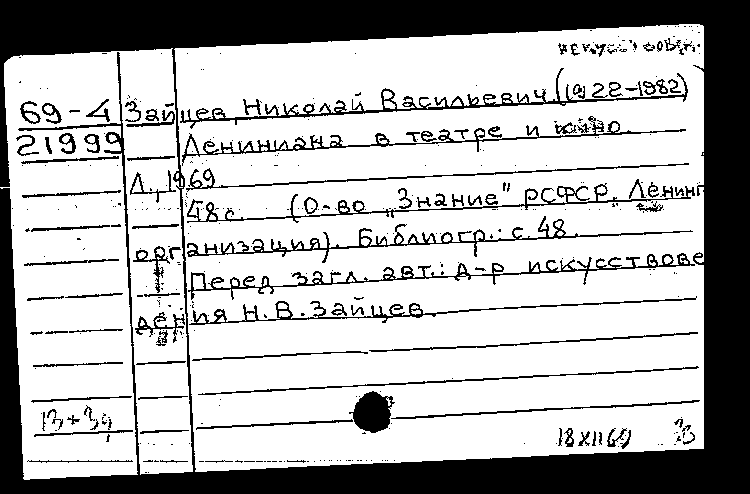 искусствовед.
69-4 Зайцев, Николай Васильевич (1922-1982)
21999 Лениниана в театре и кино.
Л., 1969.
48 с. (О-во „Знание" РСФСР. Ленинг
организация). Библиогр.: с. 48.
Перед загл. авт.: д-р искусствове
дения Н. В. Зайцев.
13+34
18 XII 69